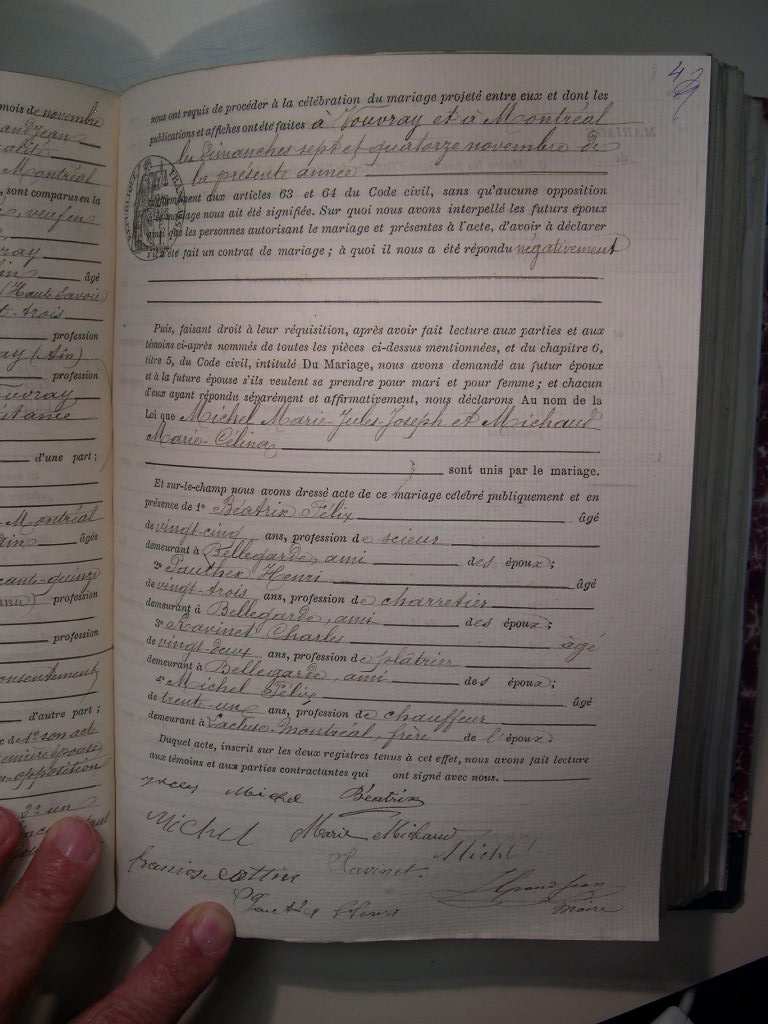 mois de novembre
Grandjean
Montréal
, sont comparus en la
, veuf en
âgé
(Haute Savoie
trois
profession
(Ain)
profession
Vouvray,
d'une part ;
Montréal
âgée
profession
profession
consentement
d'autre part ;
de 1° son acte
première épouse
opposition
2° un
47
nous ont requis de procéder à la célébration du mariage projeté entre eux et dont les
publications et affiches ont été faites à Vouvray et à Montréal
les dimanches sept et quatorze novembre de
la présente année
conformément aux articles 63 et 64 du Code civil, sans qu'aucune opposition
mariage nous ait été signifiée. Sur quoi nous avons interpellé les futurs époux
ainsi que les personnes autorisant le mariage et présentes à l'acte, d'avoir à déclarer
s'il a été fait un contrat de mariage ; à quoi il nous a été répondu négativement
Puis, faisant droit à leur réquisition, après avoir fait lecture aux parties et aux
témoins ci-après nommés de toutes les pièces ci-dessus mentionnées, et du chapitre 6,
titre 5, du Code civil, intitulé Du Mariage, nous avons demandé au futur époux
et à la future épouse s'ils veulent se prendre pour mari et pour femme ; et chacun
d'eux ayant répondu séparément et affirmativement, nous déclarons Au nom de la
Loi que Michel Marie-Jules-Joseph et Michaud
Marie-Célina
sont unis par le mariage.
Et sur-le-champ nous avons dressé acte de ce mariage célébré publiquement et en
présence de 1° Béatrix Félix âgé
de vingt-cinq ans, profession de scieur
demeurant à Bellegarde, ami des époux ;
2° Pauthex Henri âgé
de vingt-trois ans, profession de charretier
demeurant à Bellegarde, ami des époux ;
3° Ravinet Charles âgé
de vingt-deux ans, profession de plâtrier
demeurant à Bellegarde, ami des époux ;
4° Michel Félix âgé
de trente-un ans, profession de chauffeur
demeurant à Lacluse-Montréal, frère de l'époux
Duquel acte, inscrit sur les deux registres tenus à cet effet, nous avons fait lecture
aux témoins et aux parties contractantes qui ont signé avec nous.
Michel Béatrix
Michel Marie Michaud
Ravinet Michel
Henri Grandjean
maire